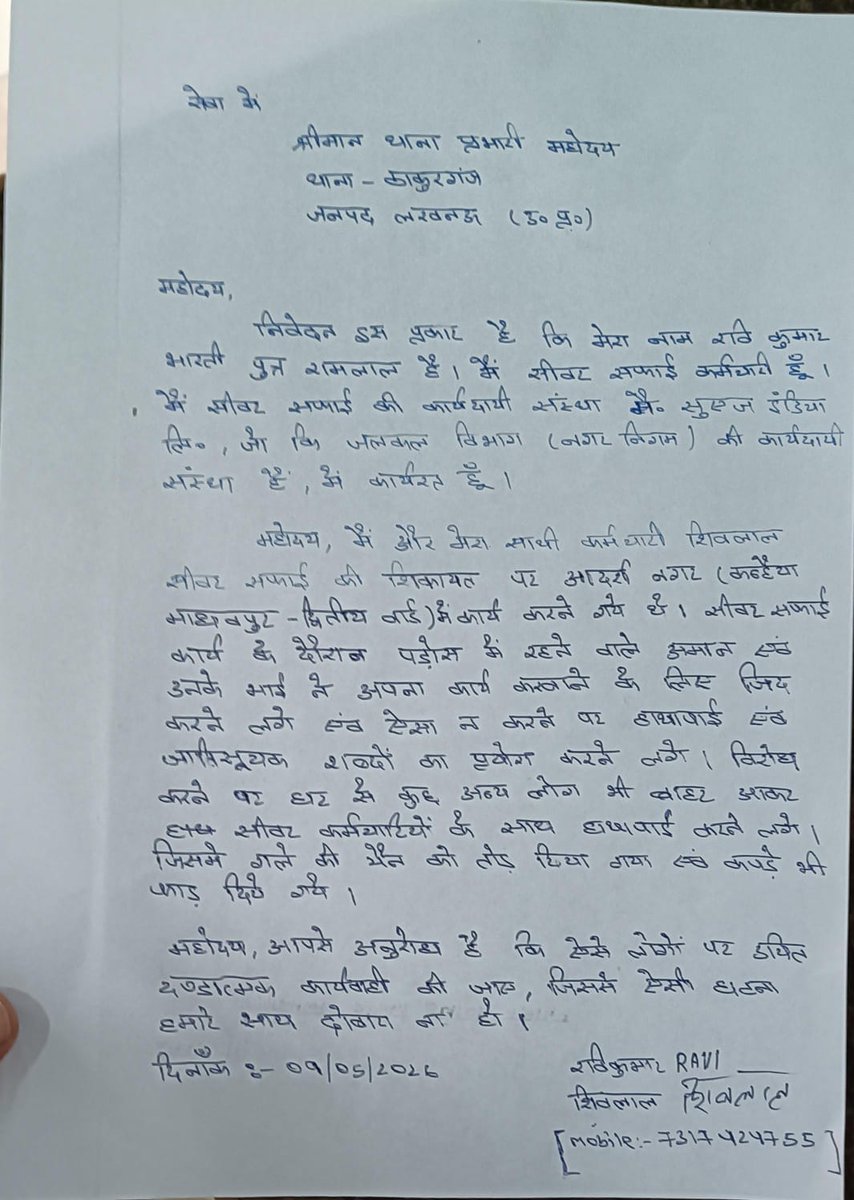 सेवा में
श्रीमान थाना प्रभारी महोदय
थाना - ठाकुरगंज
जनपद लखनऊ (उ० प्र०)
महोदय,
निवेदन इस प्रकार है कि मेरा नाम रवि कुमार
भारती पुत्र रामलाल है। मैं सीवर सफाई कर्मचारी हूँ।
मैं सीवर सफाई की कार्यदायी संस्था मै० सुएज इंडिया
लि०, जो कि जलकल विभाग (नगर निगम) की कार्यदायी
संस्था हैं, में कार्यरत हूँ।
महोदय, मैं और मेरा साथी कर्मचारी शिवलाल
सीवर सफाई की शिकायत पर आदर्श नगर (कन्हैया
माधवपुर - द्वितीय वार्ड) में कार्य करने गये थे। सीवर सफाई
कार्य के दौरान पड़ोस में रहने वाले अमान एवं
उनके भाई ने अपना कार्य करवाने के लिए जिद
करने लगे एवं ऐसा न करने पर हाथापाई एवं
जातिसूचक शब्दों का प्रयोग करने लगे। विरोध
करने पर घर से कुछ अन्य लोग भी बाहर आकर
हम सीवर कर्मचारियों के साथ हाथापाई करने लगे।
जिसमे गले की चैन को तोड़ दिया गया एवं कपड़े भी
फाड़ दिये गये।
महोदय, आपसे अनुरोध है कि ऐसे लोगों पर उचित
दण्डात्मक कार्यवाही की जाए, जिससे ऐसी घटना
हमारे साथ दोबारा ना हो।
दिनाँक :- 09/05/2026
रविकुमार RAVI
शिवलाल शिवलाल
[mobile:- 7317424755]